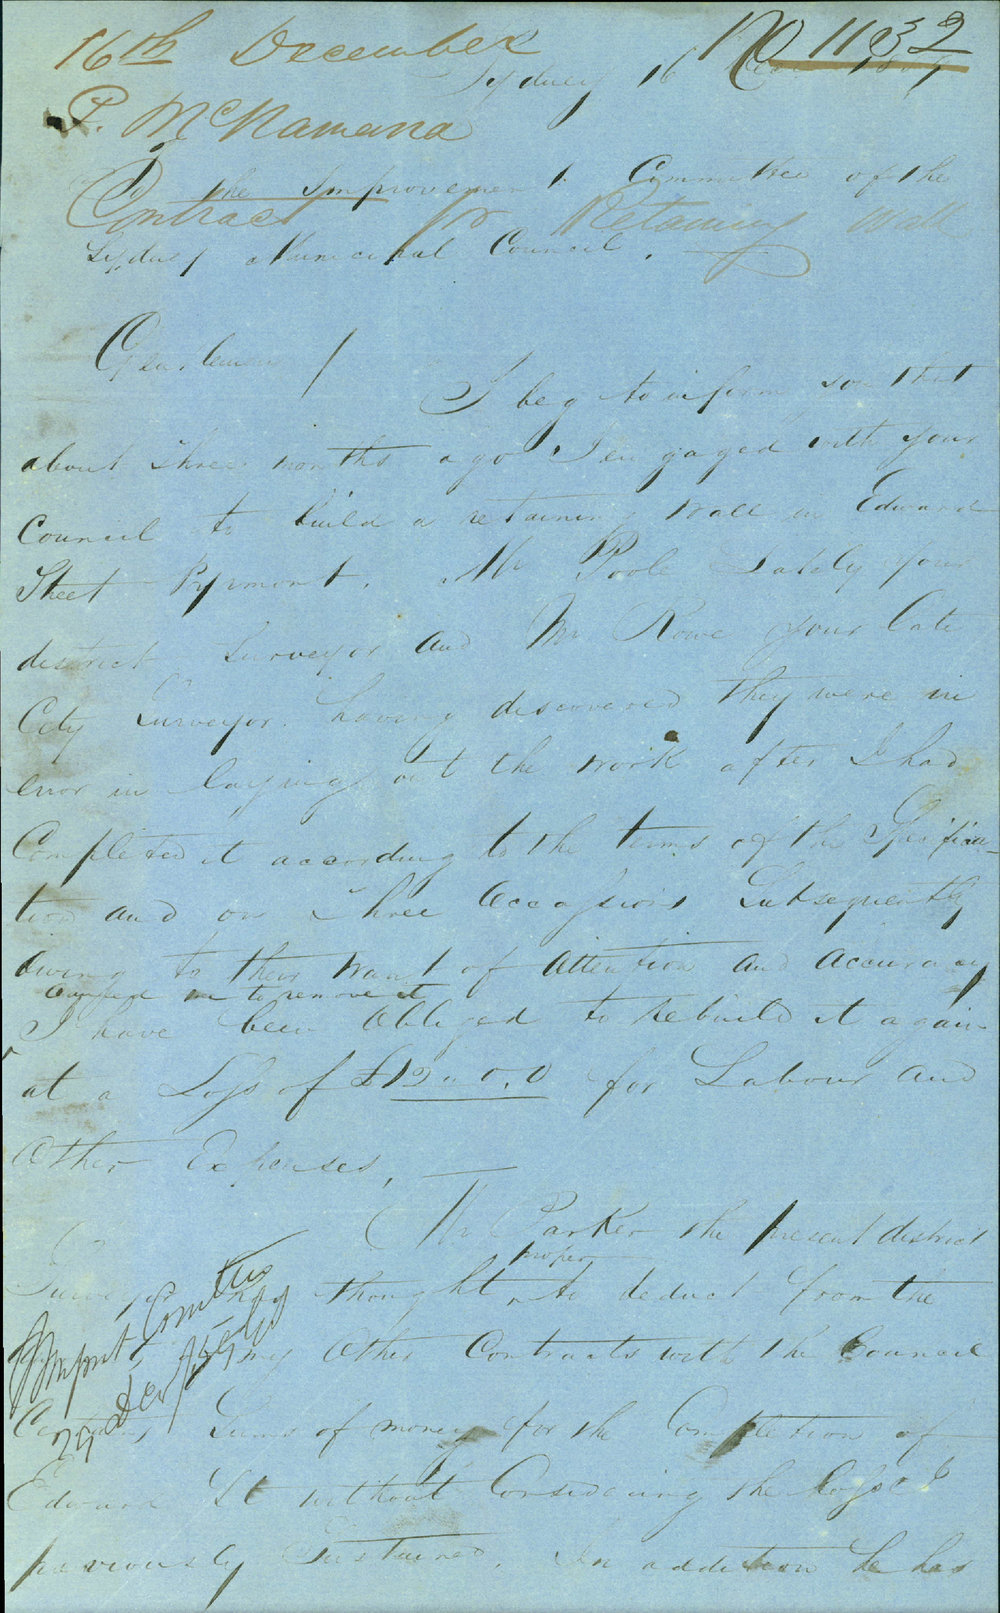 16th December
No 1132
Sydney 16
P. McNamara
To the Improvement Committee of the
Contract for Retaining Wall
Sydney Municipal Council.
Gentlemen /
I beg to inform you that
about three months ago I engaged with your
Council to build a retaining Wall in Edward
Street Pyrmont. Mr Poole Lately your
district Surveyor and Mr Rowe your late
City Surveyor. having discovered they were in
error in laying out the work after I had
Completed it according to the terms of the Specifica-
tion and on three Occassions Subsequently
Owing to their want of Attention and Accuracy
caused me to remove it
I have been Obliged to rebuild it again
at a Loss of £12.0.0 for Labour and
Other Expenses,
Mr Parker the present district
proper
Surveyor has thought to deduct from the
my Other Contracts with the Council
Imput Comttee
29 Decr
Certain Sums of money for the Completion of
Edward St without Considering the loss I
previously Sustained. In addition he has